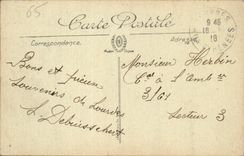 65
Carte Postale
Correspondance
Adresse
9 45
18
18
Bons et pieux
Souvenirs de Lourdes
Monsieur Herbin
3/61
Secteur 3